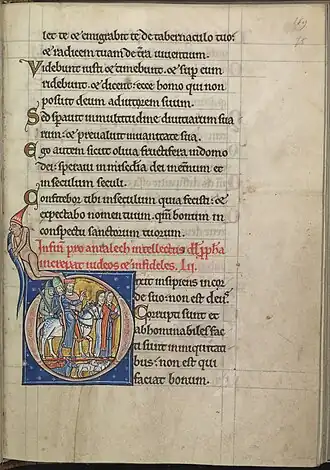 let te et emigrabit te de tabernaculo tuo: et
radicem tuam de t̄ra uiuentium.
Videbunt iusti et timebunt. et sup eum
ridebunt. et dicent: ecce homo qui non
posuit deum adiutorem suum.
Sed sperauit in multitudine diuitiarum sua
rum: et preualuit in uanitate sua.
Ego autem sicut oliua fructifera in domo
dei: speraui in mis̄cdia dei mei in et̄num et
in seculum seculi.
Confitebor tibi in seculum quia fecisti: et
expectabo nomen tuum. qm̄ bonum in
conspectu sanctorum tuorum.
Infinē pro amalech intellectus dd̄. ppha
increpat iudeos et infideles. Lii.
Dixit insipiens in cor
de suo: non est deus.
Corrupti sunt et
abhominabiles fac
ti sunt in iniquitati
bus: non est qui
faciat bonum.